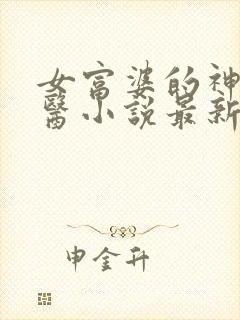 女富婆的神
醫小說最新
申金升